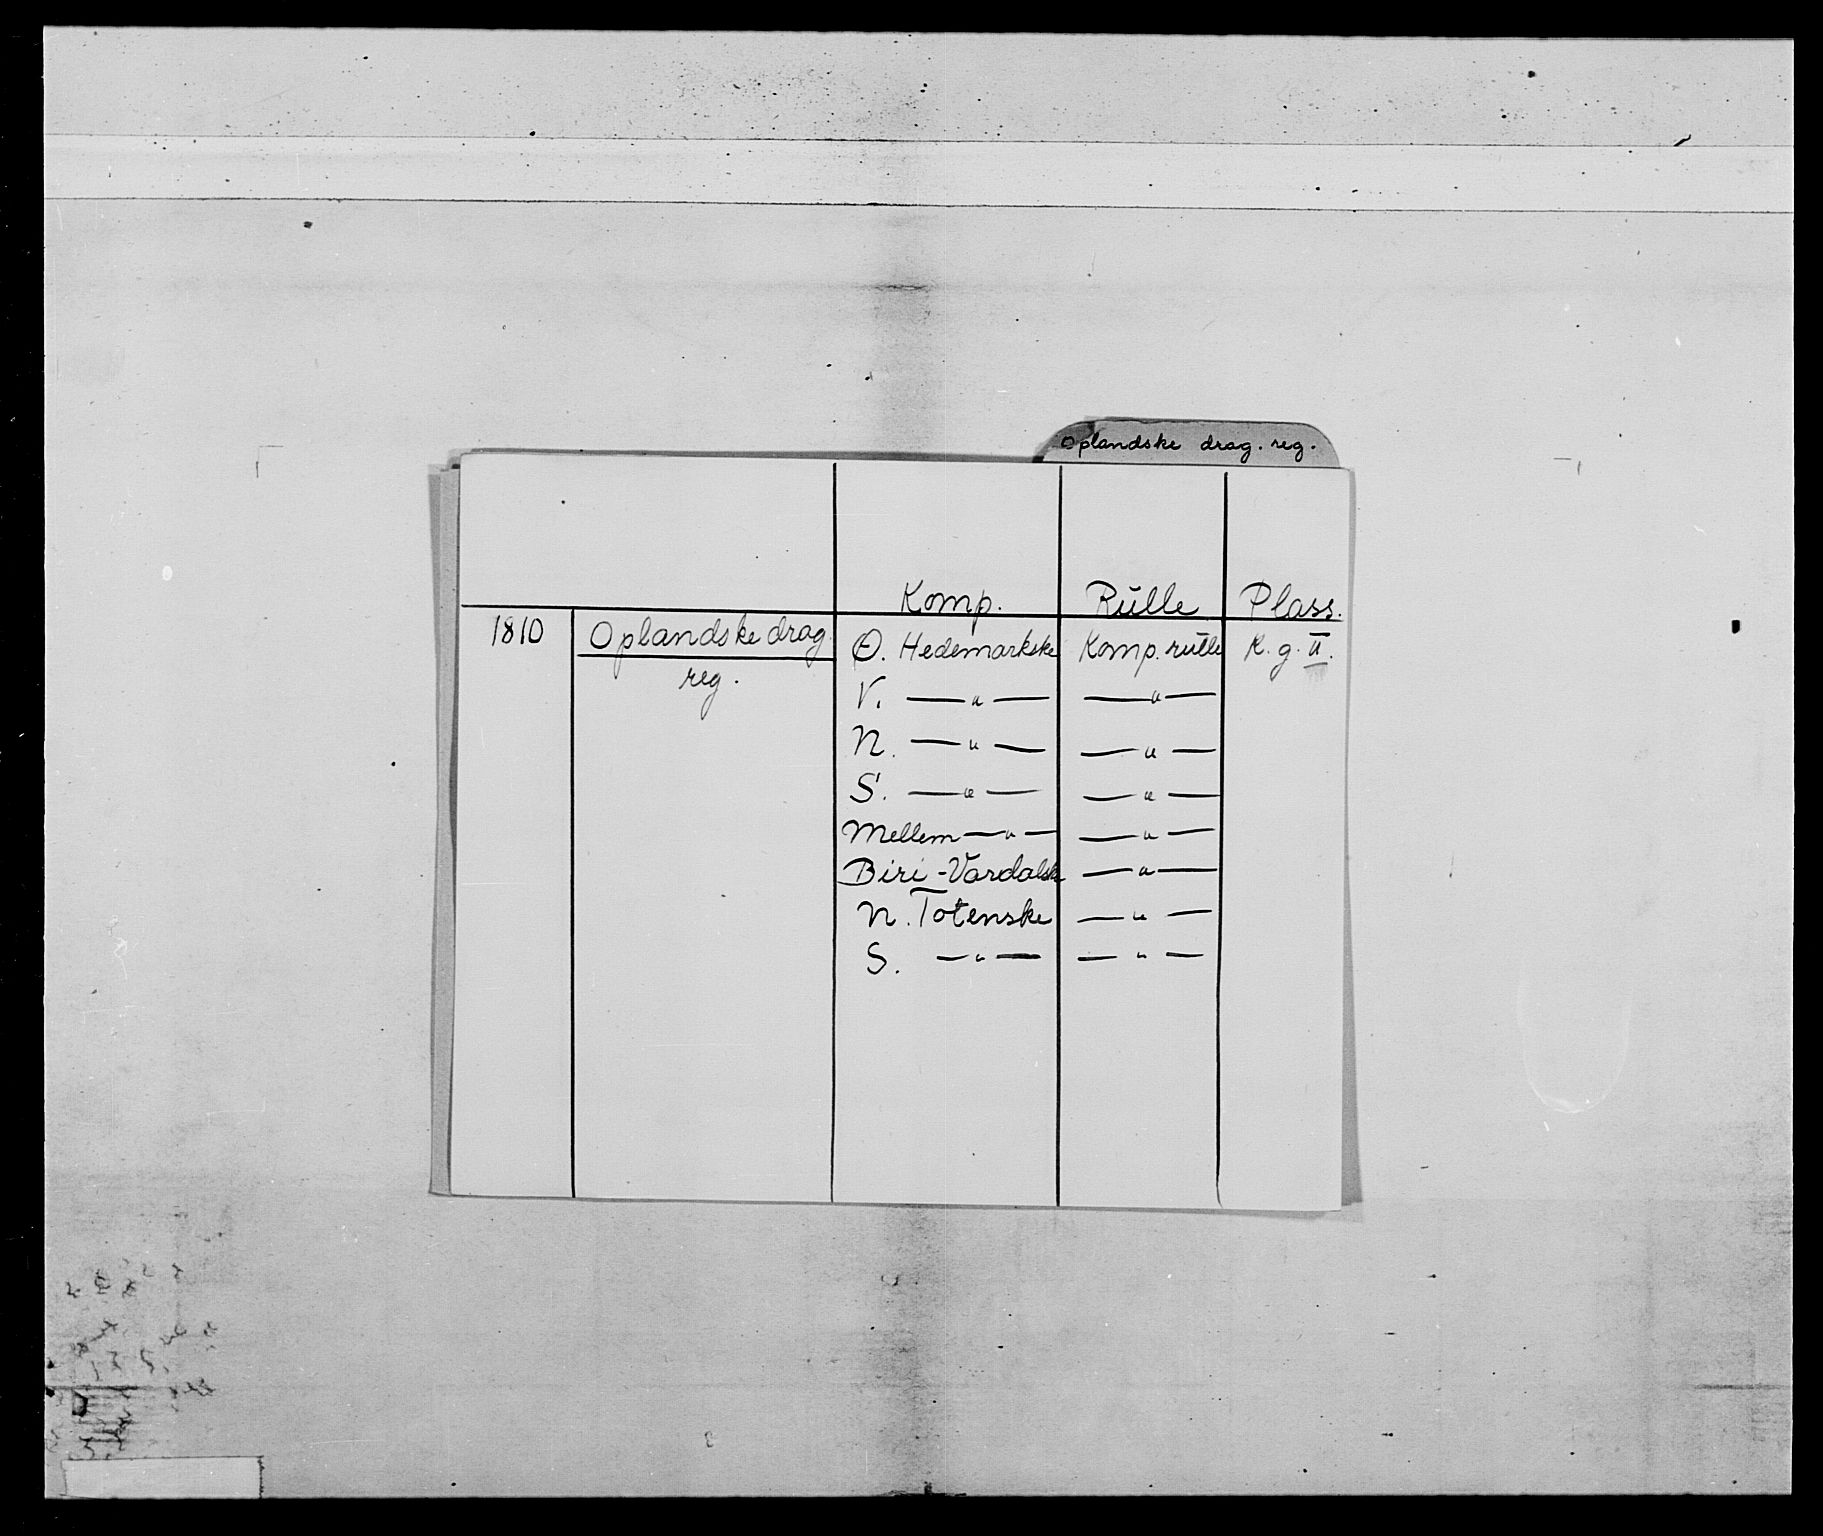 Oplandske drag. reg.
Komp. Rulle Plass.
1810 Oplandske drag. Ø. Hedemarkske Komp. rulle K. g. II.
reg.
V. — " — — " —
N. — " — — " —
S. — " — — " —
Mellem — " — — " —
Biri-Vardalske — " —
N. Totenske — " —
S. — " — — " —